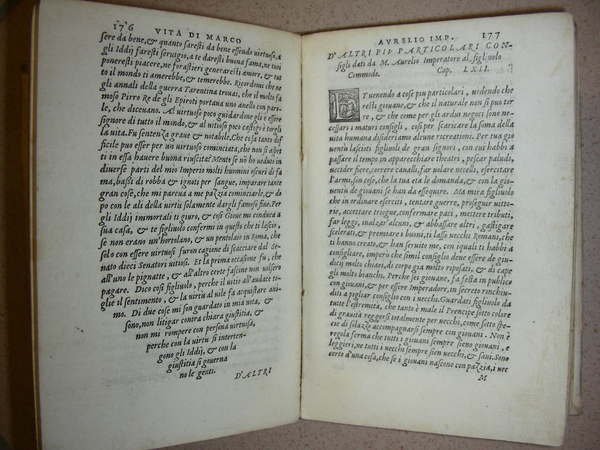 176 VITA DI MARCO
sere da bene, & quanto faresti da bene essendo virtuoso, a
gli Iddij faresti servigio, a te daresti buona fama, ne tuoi
poneresti piacere, ne forastieri generaresti amore, & tut
to il mondo ti amerebbe, & temerebbe. Ricordomi che ne
gli annali della guerra Tarentina trovai, che il molto fa
moso Pirro Re de gli Epiroti portava uno anello con paro-
le, che dicevano. Al virtuoso poco guidardone gli è essere
signore di tutto il mondo, & al vitioso poco castigo è torgli
la vita. Fu sentenza grave & notabile. Che cosa tanto dif
ficile puo essere per un virtuoso cominciata, che non si spe
ri in essa havere buona riuscita? Mente se no ho veduti in
diverse parti del mio Imperio molti huomini oscuri di fa
ma, bassi di robba & ignoti per sangue, imparare tante
gran cose, che mi pareva a me pazzia cominciarle, & da
poi con le ali della virtu solamente dargli famose fine. Per
gli Iddij immortali ti giuro, & cosi Giove mi conduca a
sua casa, & te figliuolo confermi in questo che ti lascio,
se non erano un'hortolano, & un pentolaio in Roma, che
con essere virtuosi furon cagione di scacciare dal Se-
nato dieci Senatori vitiosi. Et la prima occasione fu, che
all'uno le pignatte, & all'altro certe fascine non volsero
pagare. Dico questo figliuolo, perche il vitio l'audace to-
glie il sentimento, & la virtu al vile fa acquistare ani-
mo. Di due cose mi son guardato in mia vita, &
sono, non litigar contra chiara giustitia, &
non mi rompere con persona virtuosa,
perche con la virtu si interten-
gono gli Iddij, & con la
giustitia si governa
no le genti.
D'ALTRI
AVRELIO IMP. 177
D'ALTRI PIV PARTICOLARI CON-
sigli dati da M. Aurelio Imperatore al figliuolo
Commodo. Cap. LXII.
Et venendo a cose piu particolari, vedendo che
resti giovane, & che il naturale non si puo tor
re, & che come per gli ardui negotij sono ne-
cessari i maturi consigli, cosi per scaricare la soma della
vita humana desideriamo alcune ricreationi. Per tua gio
ventu figliuolo ti lascio giovani de gran signori, con i quali ti habbi a
passare il tempo in apparecchiare theatri, pescar paludi,
uccider fiere, correre cavalli, far volare uccelli, esercitare
l'armi, son cose, che la tua età le domanda, & con la gio
ventu de giovani se han da essequire. Ma mira figliuolo
che in ordinare eserciti, tentare guerre, proseguir vitto-
rie, accettare tregue, confermare pati, mettere tributi,
far leggi, inalzar d'alcuni, & abbassar altri, castigare
scelerati, & premiare i buoni, ti lasso vecchi Romani, che
ti hanno creato, & han servito me, con i quali ti habbi a
consigliare, imperò che il consiglio deve essere de giudi-
cio molto chiari, di corpo gia molto riposati, & di cape
gli molti bianchi. Perche sei giovane, fa festa in publico
con giovani, & per essere Imperadore, in secreto sbriga
ti in tutte cose con consiglio con i vecchi. Guardati figliuolo da
tutte l'estremità, che tanto è male il Prencipe sotto colore di
gravità reggersi totalmente per vecchi, come sotto spe-
cie di solazzo accompagnarsi sempre con giovani. Non
è regola generale, che i giovani sempre sieno giovani, &
leggieri, ne tutti i vecchi sempre sien vecchi & savi. Sono
certo d'una cosa, che se i giovani nascono con pazzia, i vec
M